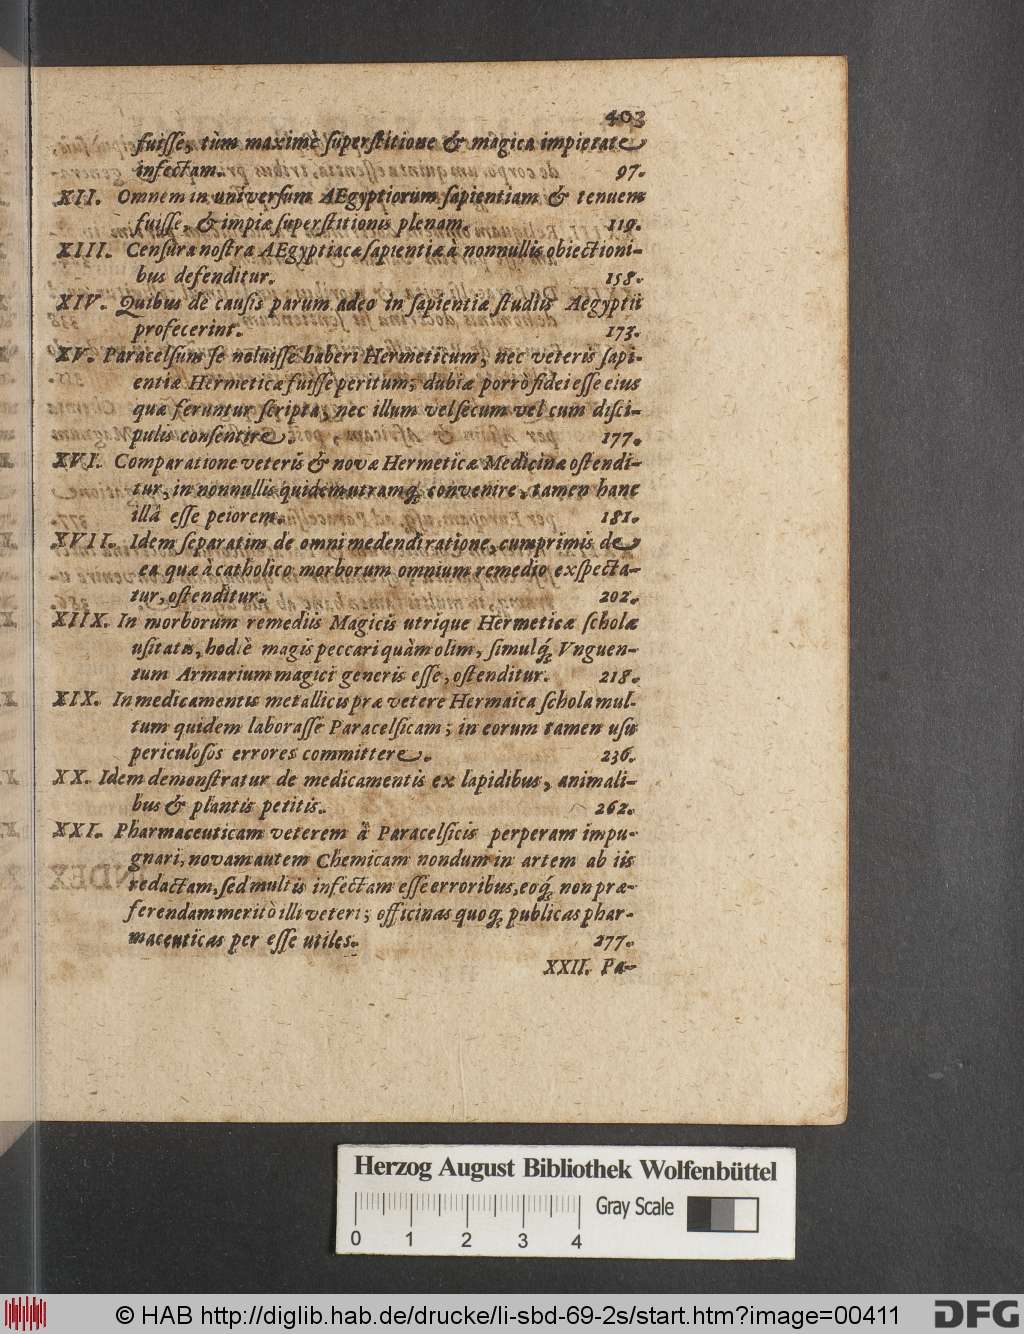 403
fuiſſe, tùm maximè ſuperſtitione & magica impietate
infectam. 97.
XII. Omnem in univerſum AEgyptiorum ſapientiam & tenuem
fuiſſe, & impiæ ſuperſtitionis plenam. 119.
XIII. Cenſura noſtra AEgyptiacæ ſapientiæ à nonnullis obiectioni-
bus defenditur. 158.
XIV. Quibus de cauſis parum adeo in ſapientiæ ſtudiis Aegyptii
profecerint. 173.
XV. Paracelſum ſe noluiſſe haberi Hermeticum, nec veteris ſapi-
entiæ Hermeticæ fuiſſe peritum; dubiæ porrò fidei eſſe eius
quæ feruntur ſcripta, nec illum vel ſecum vel cum diſci-
pulis conſentire. 177.
XVI. Comparatione veteris & novæ Hermeticæ Medicinæ oſtendi-
tur, in nonnullis quidem utramq́; convenire, tamen hanc
illâ eſſe peiorem. 181.
XVII. Idem ſeparatim de omni medendi ratione, cumprimis de
ea quæ à catholico morborum omnium remedio exſpecta-
tur, oſtenditur. 202.
XIIX. In morborum remediis Magicis utrique Hermeticæ ſcholæ
uſitatis, hodiè magis peccari quàm olim, ſimulq́; Vnguen-
tum Armarium magici generis eſſe, oſtenditur. 218.
XIX. In medicamentis metallicis præ vetere Hermaica ſchola mul-
tum quidem laboraſſe Paracelſicam; in eorum tamen uſu
periculoſos errores committere. 236.
XX. Idem demonſtratur de medicamentis ex lapidibus, animali-
bus & plantis petitis. 262.
XXI. Pharmaceuticam veterem à Paracelſicis perperam impu-
gnari, novam autem Chemicam nondum in artem ab iis
redactam, ſed multis infectam eſſe erroribus, eoq́; non præ-
ferendam meritò illi veteri; officinas quoq; publicas phar-
maceuticas per eſſe utiles. 277.
XXII. Pa-
Herzog August Bibliothek Wolfenbüttel
Gray Scale
0 1 2 3 4
© HAB http://diglib.hab.de/drucke/li-sbd-69-2s/start.htm?image=00411
DFG